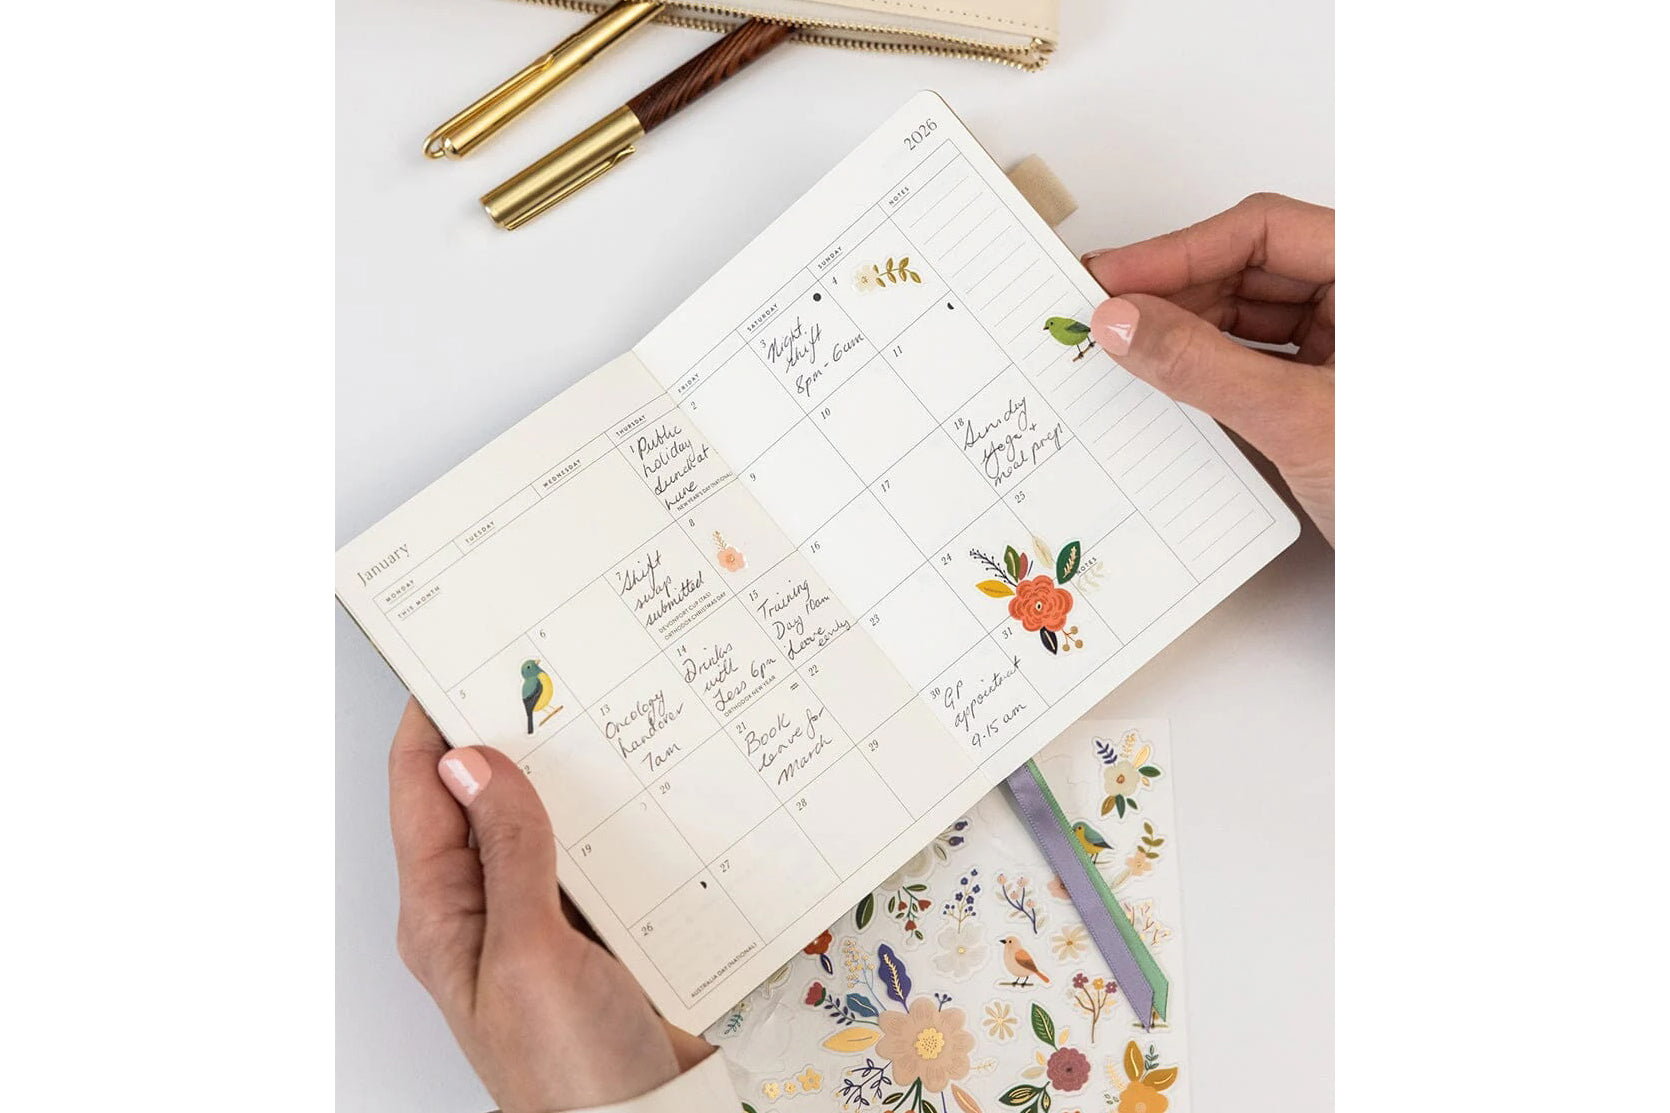 January
2026
MONDAY
TUESDAY
WEDNESDAY
THURSDAY
FRIDAY
SATURDAY
SUNDAY
NOTES
THIS MONTH
1
Public
holiday
lunch at
NEW YEAR'S DAY (NATIONAL)
2
3
Night
shift
8pm - 6am
4
5
6
7
Shift
swap
submitted
DEVONPORT CUP (TAS)
ORTHODOX CHRISTMAS DAY
8
9
10
11
12
13
Oncology
handover
7am
14
Drinks
with
Jess 6pm
ORTHODOX NEW YEAR
15
Training
Day 10am
Leave
early
16
17
18
Sunday
yoga +
meal prep
19
20
21
Book
leave for
March
22
23
24
25
NOTES
26
AUSTRALIA DAY (NATIONAL)
27
28
29
30
GP
appointment
9.15 am
31